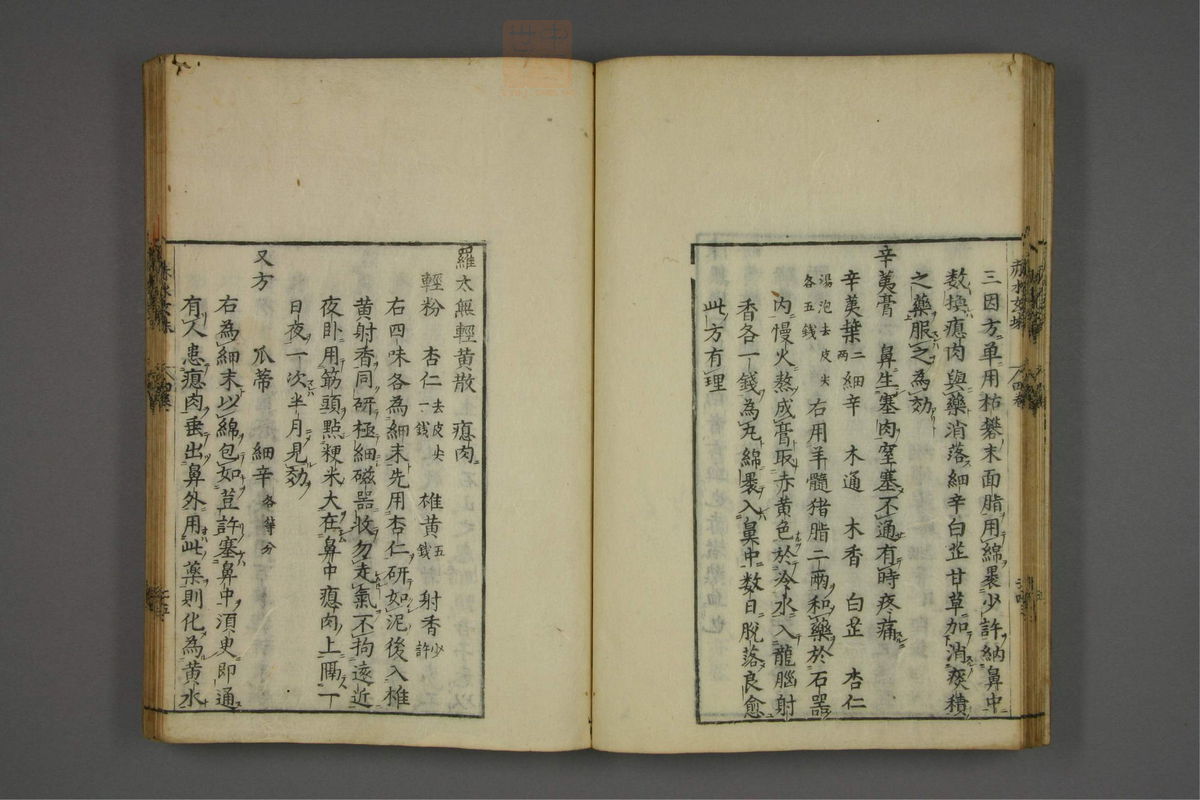 三因方單用枯礬末面脂用綿裹少許納鼻中
数換瘜肉與藥消落細辛白芷甘草加消痰積
之藥服之為効
辛夷膏 鼻生塞肉窒塞不通有時疼痛
辛荑葉二兩細辛 木通 木香 白芷 杏仁
湯泡去皮尖各五錢 右用羊髓猪脂二兩和藥於石器
内慢火熬成膏取赤黄色於冷水入龍腦射
香各一錢為丸綿裹入鼻中数日脫落良愈
此方有理
羅太無輕黄散 瘜肉
輕粉 杏仁一錢去皮尖 雄黄五錢 射香少許
右四味各為細末先用杏仁研如泥後入雄
黄射香同研極細磁器收勿走氣不拘遠近
夜卧用筯頭點粳米大在鼻中瘜肉上隔一
日夜一次半月見効
又方 瓜蒂 細辛各等分
右為細末以綿包如豆許塞鼻中須臾即通
有人患瘜肉垂出鼻外用此藥則化為黄水